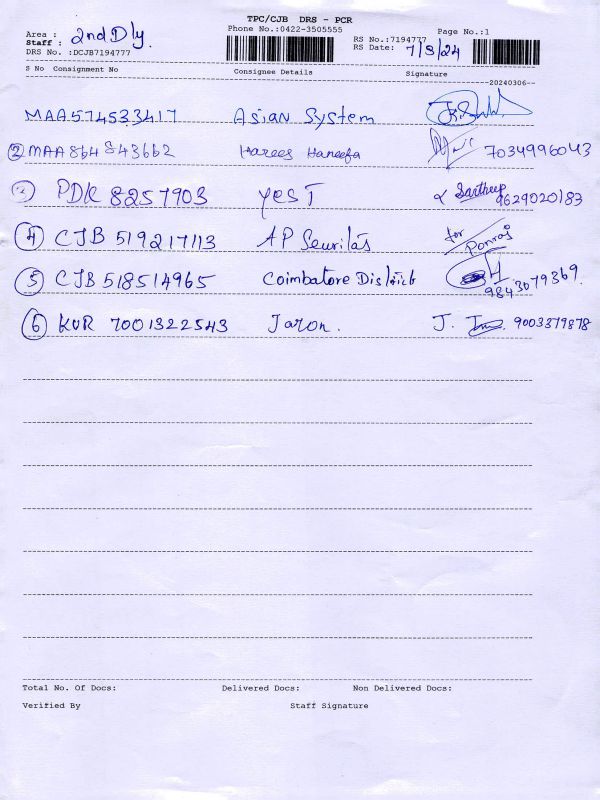 TPC/CJB DRS - PCR
Area : 2nd Dly. Phone No.:0422-3505555 Page No.:1
Staff : RS No.:7194777
DRS No. :DCJB7194777 RS Date: 7/3/24
S No Consignment No Consignee Details Signature
20240306
MAA574533417 Asian System
2 MAA864843662 Harees Haneefa 7034996043
3 PDK 8257903 YES T Sartheep 9629020183
4 CJB 519217113 AP for Ponraj
5 CJB 518514965 Coimbatore District 9843079369.
6 KUR 7001322543 Jaron. J. 9003379878
Total No. Of Docs: Delivered Docs: Non Delivered Docs:
Verified By Staff Signature